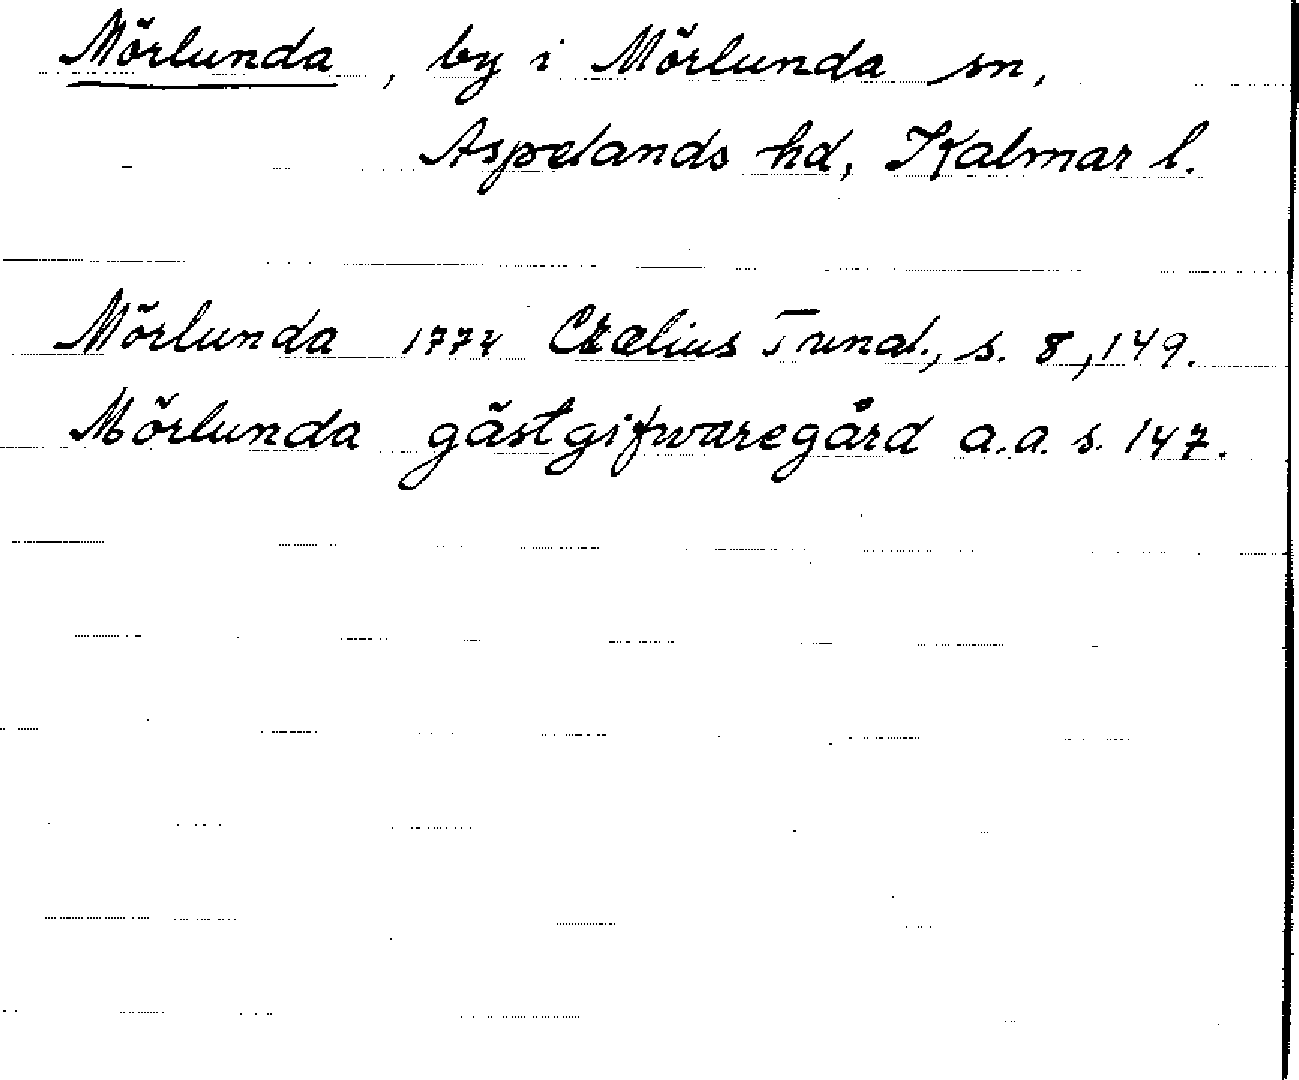 Mörlunda, by i Mörlunda sn,
Aspelands hd, Kalmar l.
Mörlunda 1774 Crælius Tunal., s. 8, 149.
Mörlunda gästgifwaregård a.a. s. 147.